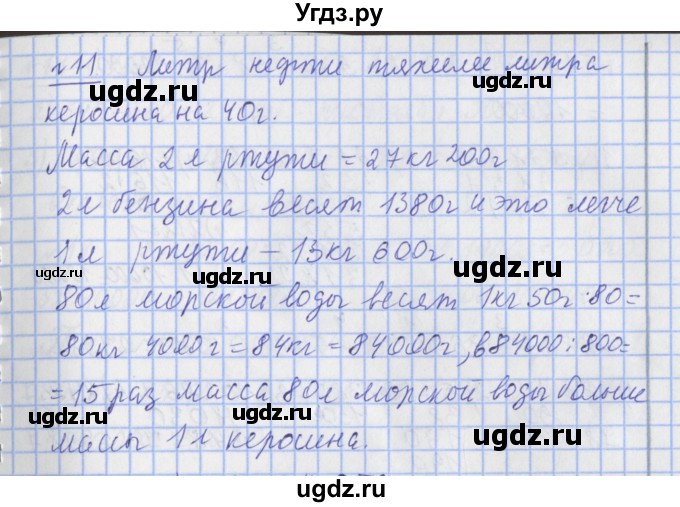 Угдз.ру
№11 Литр нефти тяжелее литра
ugdz.ru ugdz.ru
керосина на 40г.
Масса 2 л ртути = 27 кг 200г
ugdz.ru ugdz.ru
2л бензина весят 1380г и это легче
1 л ртути - 13кг 600г.
ugdz.ru ugdz.ru ugdz.ru
80л морской воды весят 1кг 50г·80=
80кг 4000г = 84кг = 84000г, в 84000:800=
ugdz.ru ugdz.ru
= 15 раз масса 80л морской воды больше
ugdz.ru ugdz.ru
массы 1 л керосина.
ugdz.ru
ugdz.ru